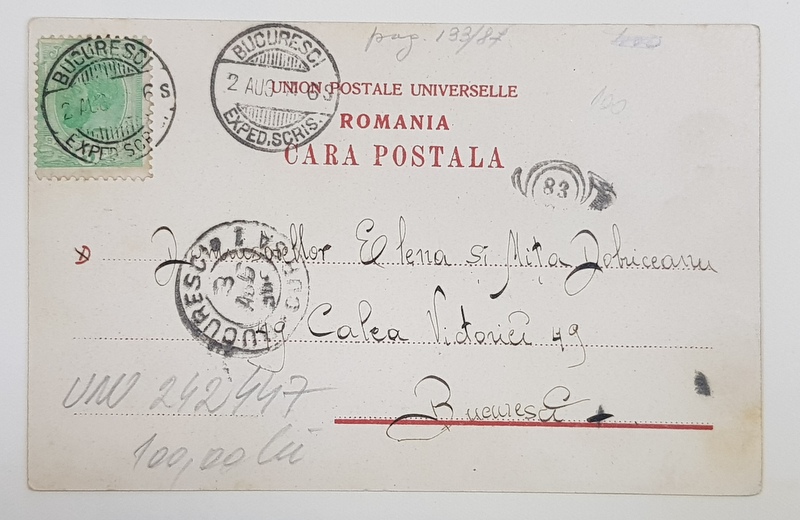 pag. 133/87
100
BUCURESCI
2 AUG 6 S
EXPED. SCRIS.
BUCURESCI
2 AUG 6 S
EXPED. SCRIS.
UNION POSTALE UNIVERSELLE
ROMANIA
CARA POSTALA
83
Domnișoarelor Elena și Mița Dobriceanu
49 Calea Victoriei 49
București
BUCURESCI
3 AUG
CURSA 1
242447
100,00 lei